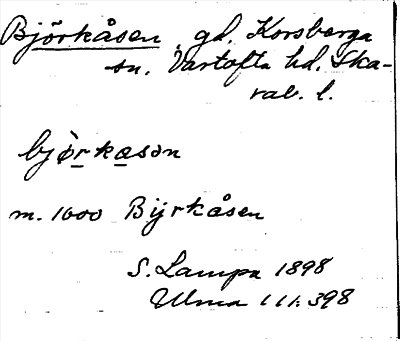 Björkåsen, gd. Korsberga
sn. Vartofta hd. Ska-
rab. l.
bjòrkasən
m. 1600 Bijrkåsen
S. Lampa 1898
Ulma 111:398